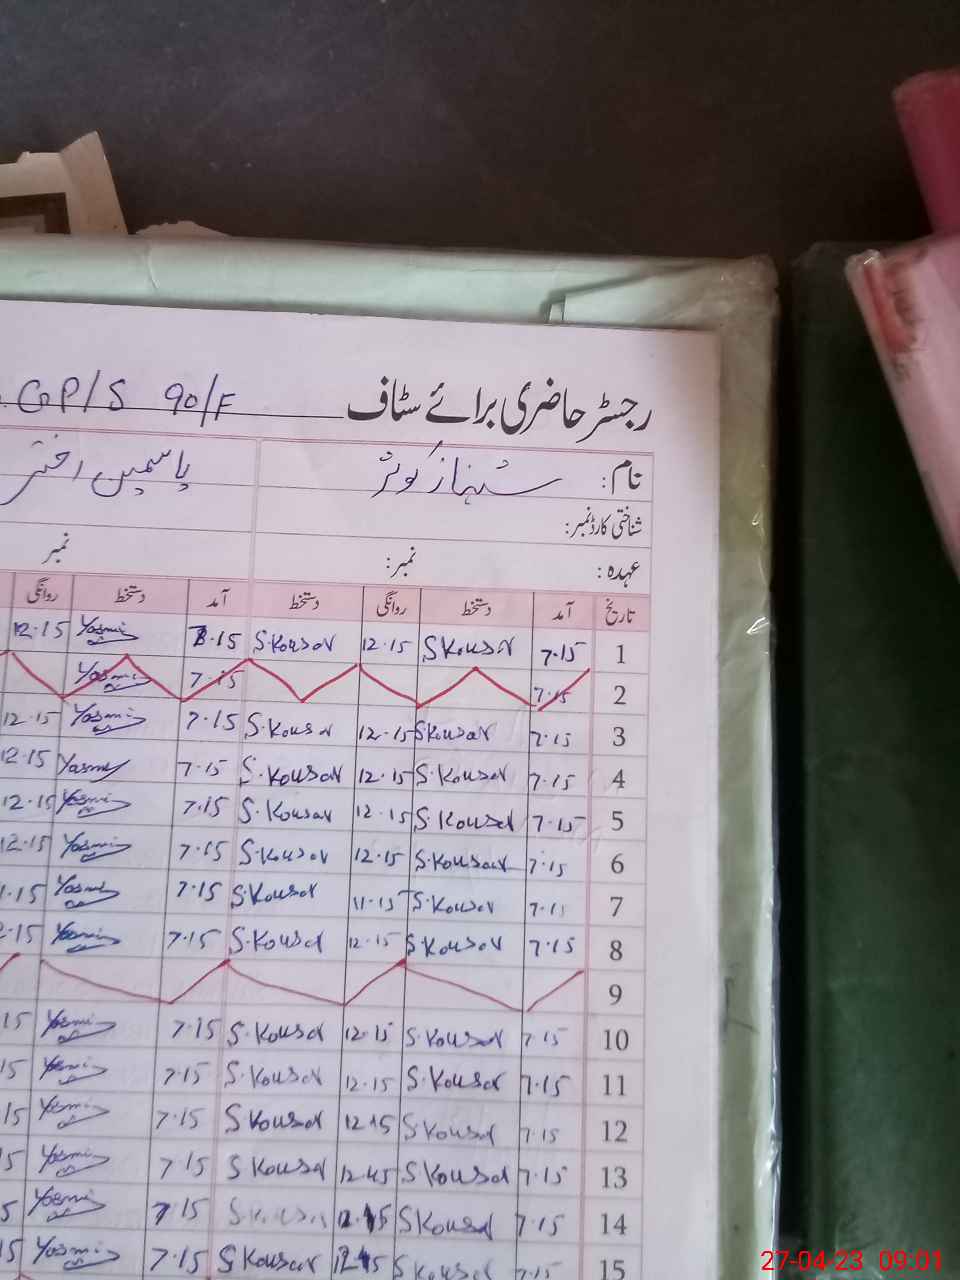 GP/S 90/F رجسٹر حاضری برائے سٹاف
نام: شہناز کوثر یاسمین اختر
شناختی کارڈ نمبر:
عہدہ: نمبر: نمبر
تاریخ آمد دستخط روانگی دستخط آمد دستخط روانگی
1 7.15 S.Kousar 12.15 S.Kousar 7.15 Yasmin 12.15
2 7.15 7.15 Yasmin
3 7.15 S.Kousar 12.15 S.Kousar 7.15 Yasmin 12.15
4 7.15 S.Kousar 12.15 S.Kousar 7.15 Yasmin 12.15
5 7.15 S.Kousar 12.15 S.Kousar 7.15 Yasmin 12.15
6 7.15 S.Kousar 12.15 S.Kousar 7.15 Yasmin 12.15
7 7.15 S.Kousar 11.15 S.Kousar 7.15 Yasmin 1.15
8 7.15 S.Kousar 12.15 S.Kousar 7.15 Yasmin 2.15
9
10 7.15 S.Kousar 12.15 S.Kousar 7.15 Yasmin 15
11 7.15 S.Kousar 12.15 S.Kousar 7.15 Yasmin 15
12 7.15 S.Kousar 12.15 S.Kousar 7.15 Yasmin 15
13 7.15 S.Kousar 12.45 S.Kousar 7.15 Yasmin 5
14 7.15 S.Kousar S.Kousar 7.15 Yasmin 5
15 7.15 S.Kousar S.Kousar 7.15 Yasmin 5
27-04-23 09:01